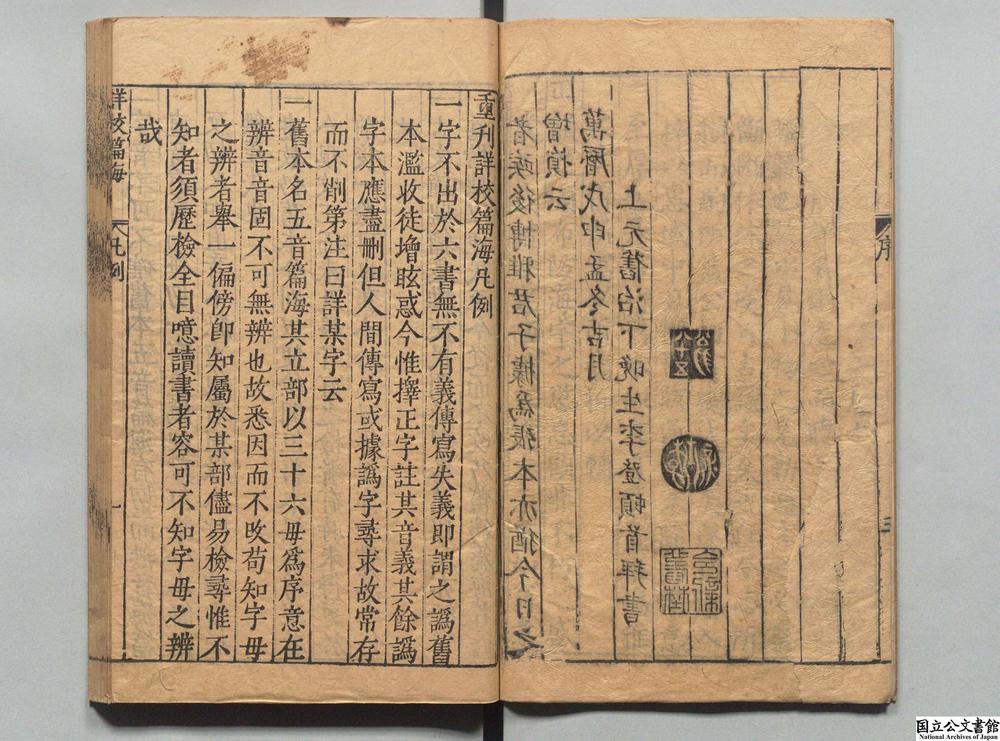 者俟後博雅君子據為張本亦猶今日之
增損云
萬曆戊申孟冬吉月
上元舊治下晚生李登頓首拜書
序
三
重刋詳校篇海凡例
一字不出於六書無不有義傳寫失義即謂之譌舊
本濫收徒增眩惑今惟擇正字註其音義其餘譌
字本應盡刪但人間傳寫或據譌字尋求故常存
而不削第注曰詳某字云
一舊本名五音篇海其立部以三十六母爲序意在
辨音音固不可無辨也故悉因而不改苟知字母
之辨者舉一偏傍卽知屬於某部儘易檢尋惟不
知者須歷檢全目噫讀書者容可不知字母之辨
哉
詳校篇海
凡例
一
国立公文書館
National Archives of Japan